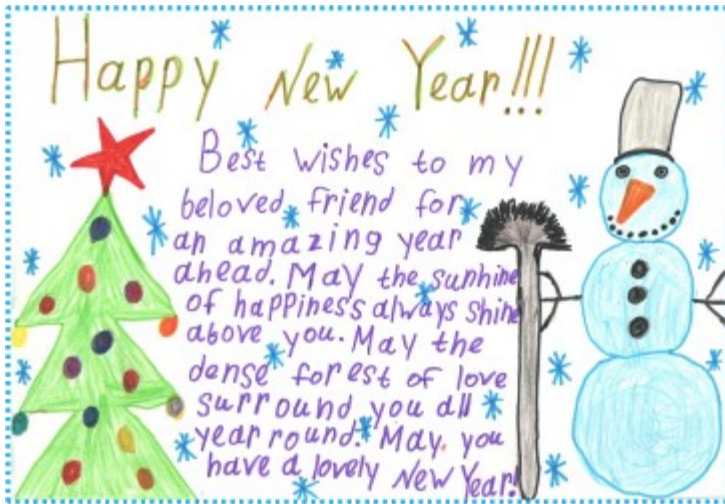 Happy New Year!!!
Best wishes to my
beloved friend for
an amazing year
ahead. May the sunhine
of happiness always shine
above you. May the
dense forest of love
surround you all
year round. May you
have a lovely New Year!